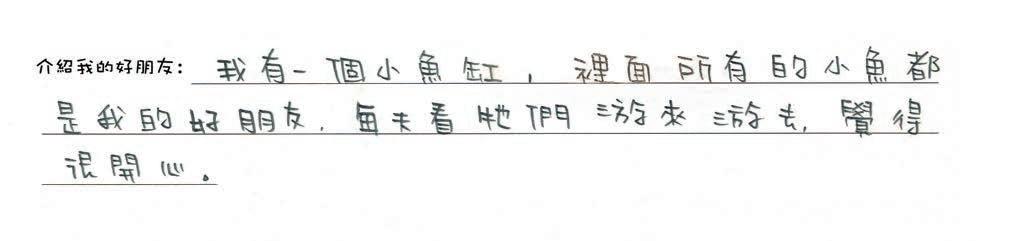 介紹我的好朋友：我有一個小魚缸，裡面所有的小魚都
是我的好朋友，每天看牠們游來游去，覺得
很開心。